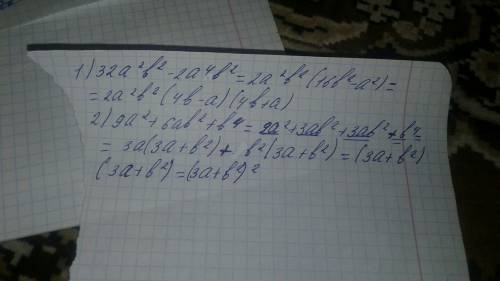 1) 32a²b² - 2a⁴b² = 2a²b²(16b² - a²) =
= 2a²b²(4b - a)(4b + a)
2) 9a² + 6ab² + b⁴ = 9a² + 3ab² + 3ab² + b⁴
= 3a(3a + b²) + b²(3a + b²) = (3a + b²)
(3a + b²) = (3a + b²)²